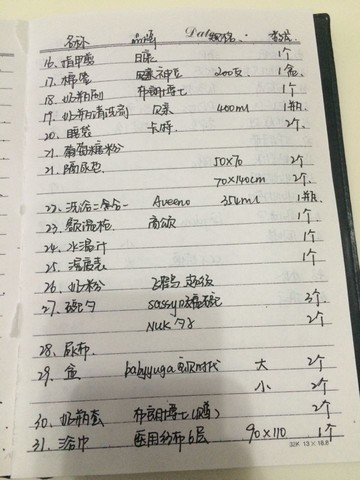 名称 品牌 Date 规格 数量
16. 指甲剪 日康 1个
17. 棉签 200支 1盒
18. 奶瓶刷 布朗博士 1个
19. 奶瓶清洗剂 贝亲 400ml 1瓶
20. 睡袋 2个
21. 葡萄糖粉
21. 隔尿巾 50×70 2个
70×140cm 2个
22. 洗浴二合一 Aveeno 354ml 1瓶
23. 额温枪 1个
24. 水温计 1个
25. 温度表 1个
26. 奶粉 飞鹤
27. 碗勺 sassy 碗 3个
NUK 勺子 2个
28. 尿布
29. 盒 babyyuga 大 2个
小 2个
30. 奶瓶套 布朗博士 2个
31. 浴巾 医用纱布6层 90×110 1个
32K 13×18.8